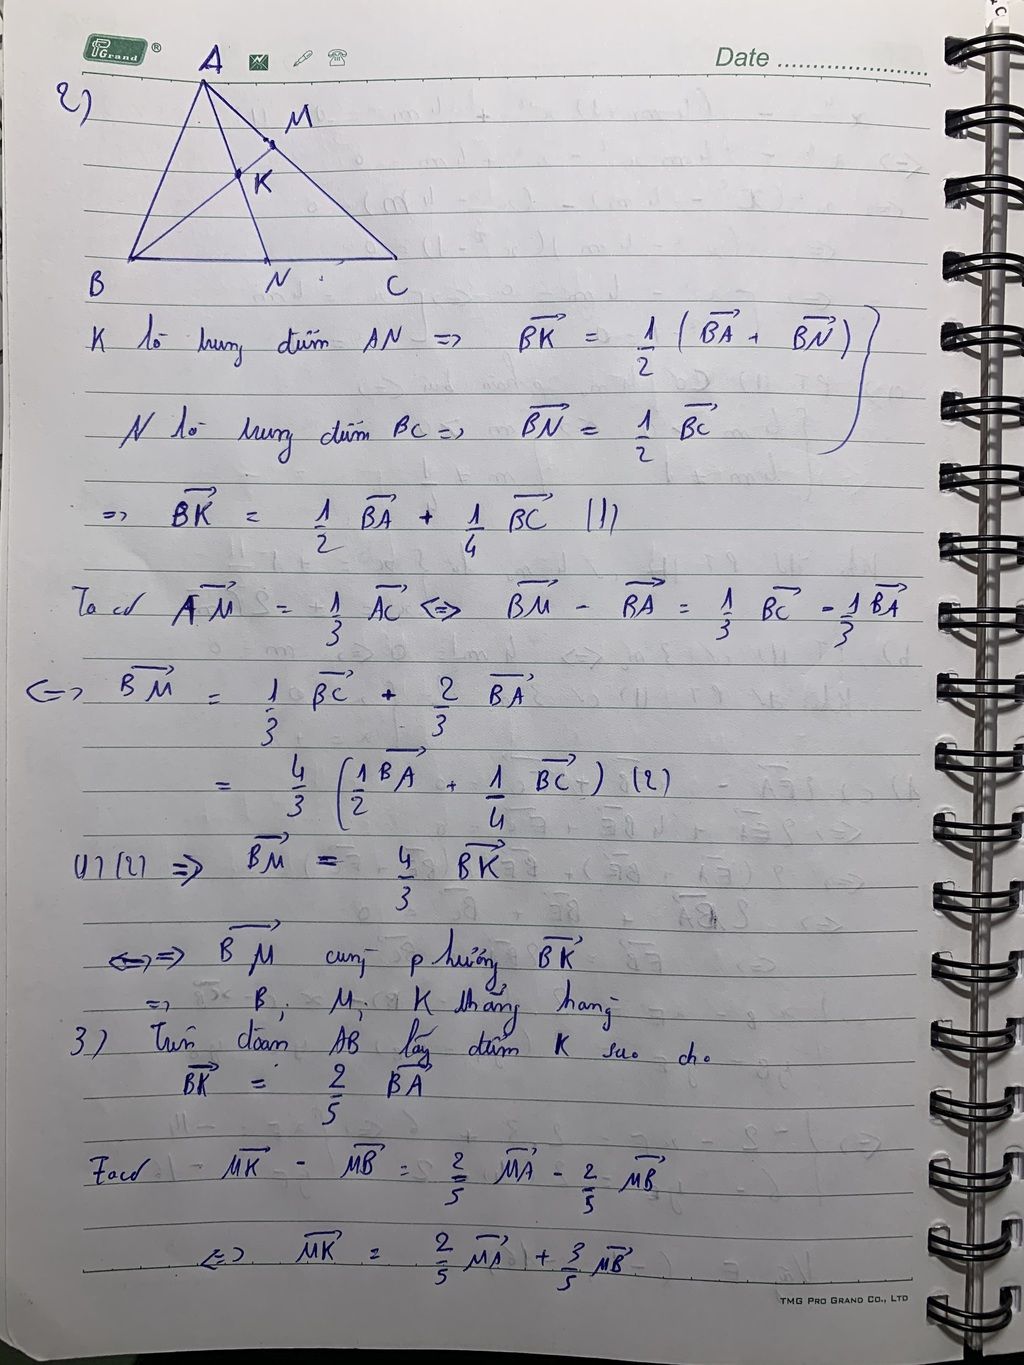 PGrand ®
Date ........................
2)
A
M
K
B N C
K là trung điểm AN => BK→ = 1/2 (BA→ + BN→)
N là trung điểm BC => BN→ = 1/2 BC→
=> BK→ = 1/2 BA→ + 1/4 BC→ (1)
Ta có AM→ = 1/3 AC→ <=> BM→ - BA→ = 1/3 BC→ - 1/3 BA→
<=> BM→ = 1/3 BC→ + 2/3 BA→
= 4/3 (1/2 BA→ + 1/4 BC→) (2)
(1) (2) => BM→ = 4/3 BK→
=> BM→ cùng phương BK→
=> B, M, K thẳng hàng
3) Trên đoạn AB lấy điểm K sao cho
BK→ = 2/5 BA→
Ta có MK→ - MB→ = 2/5 MA→ - 2/5 MB→
<=> MK→ = 2/5 MA→ + 3/5 MB→
TMG PRO GRAND CO., LTD